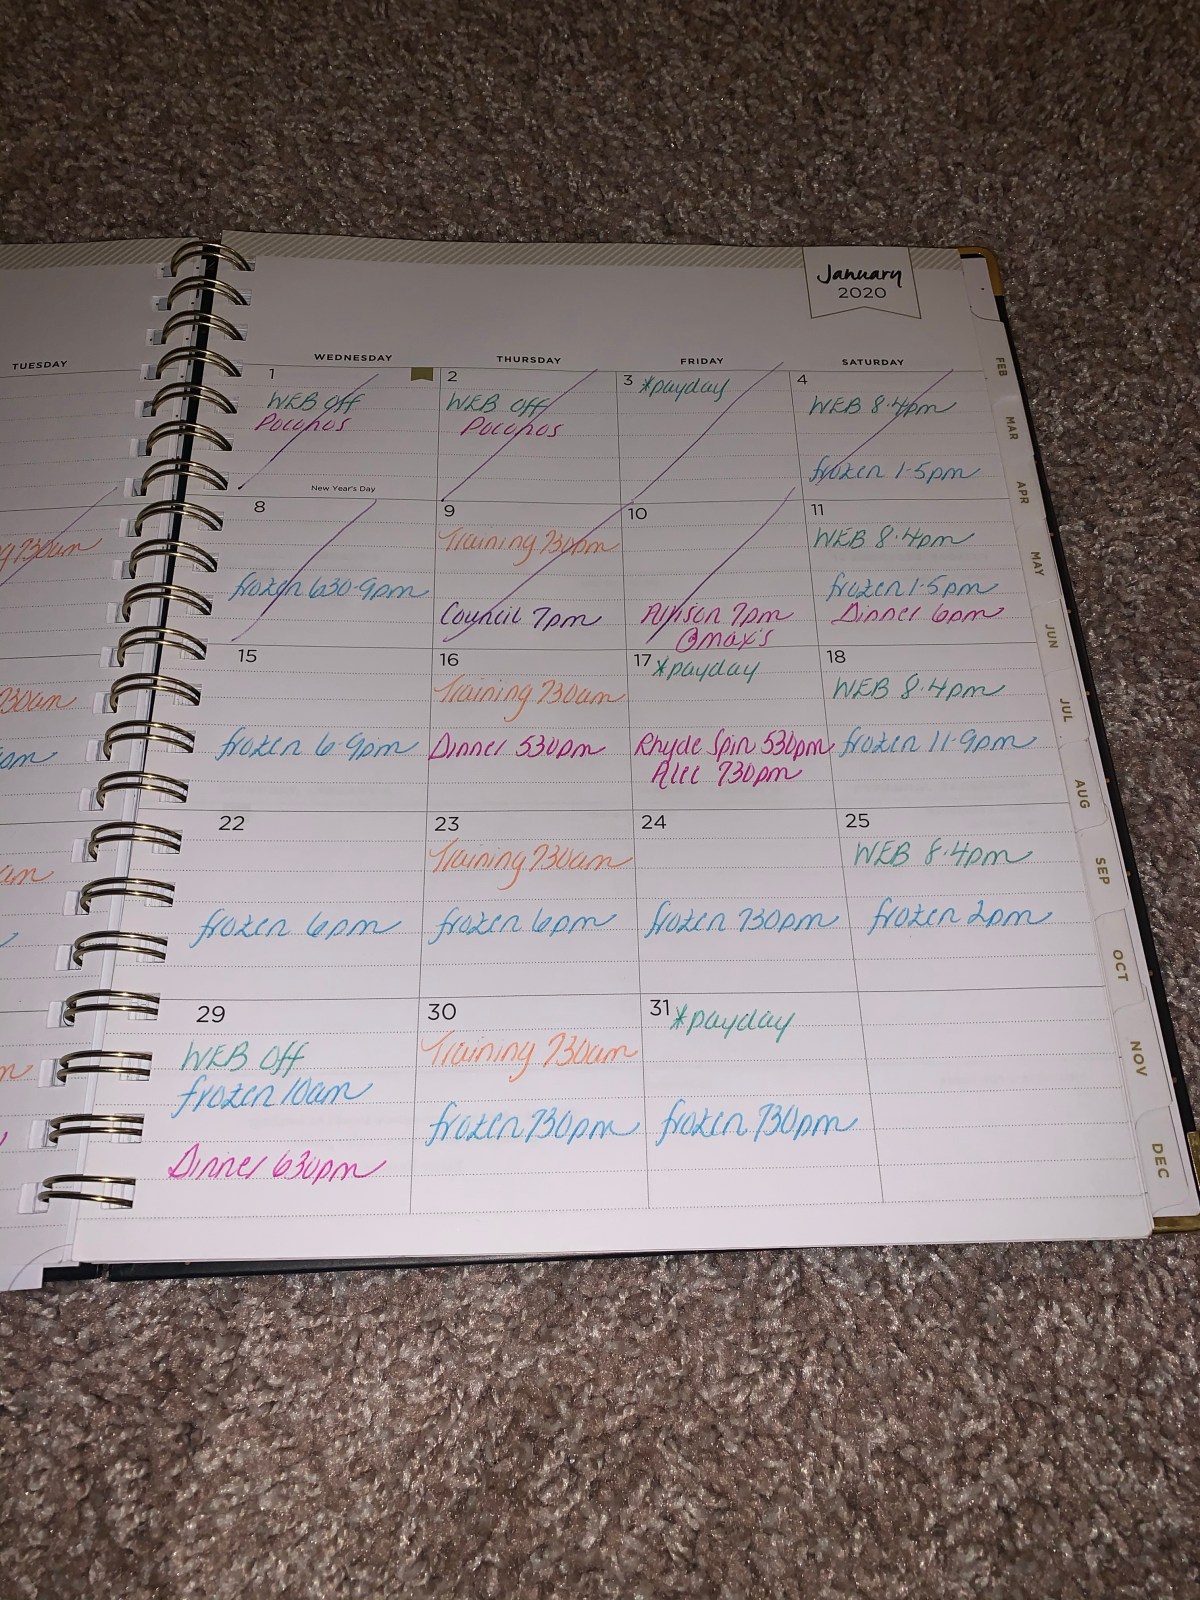 January
2020
TUESDAY
WEDNESDAY
THURSDAY
FRIDAY
SATURDAY
1
WEB off
Poconos
New Year's Day
2
WEB off
Poconos
3 *payday
4
WEB 8-4pm
frozen 1-5pm
730am
8
frozen 630-9pm
9
Training 730pm
Council 7pm
10
Allison 7pm
@max's
11
WEB 8-4pm
frozen 1-5pm
Dinner 6pm
730am
15
frozen 6-9pm
16
Training 730am
Dinner 530pm
17 *payday
Rhyde Spin 530pm
Alec 730pm
18
WEB 8-4pm
frozen 11-9pm
am
22
frozen 6pm
23
Training 730am
frozen 6pm
24
frozen 730pm
25
WEB 8-4pm
frozen 2pm
29
WEB off
frozen 10am
Dinner 630pm
30
Training 730am
frozen 730pm
31 *payday
frozen 730pm
FEB
MAR
APR
MAY
JUN
JUL
AUG
SEP
OCT
NOV
DEC